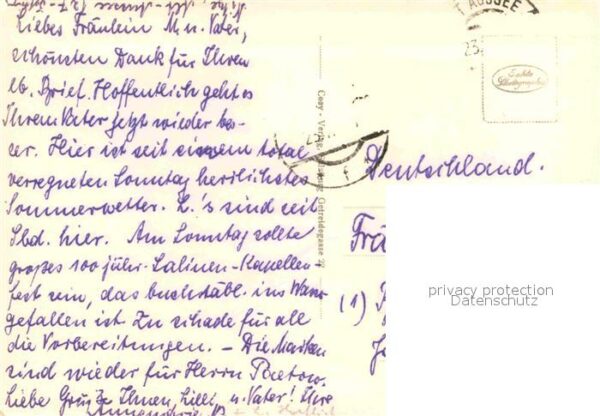 Liebes Fräulein M. u. Vater,
schönsten Dank für Ihren
lb. Brief. Hoffentlich geht es
Ihrem Vater jetzt wieder bes-
ser. Hier ist seit einem total
verregneten Sonntag herrlichstes
Sommerwetter. L.'s sind seit
Sbd. hier. Am Sonntag sollte
großes 100 jähr. Salinen-Kapellen
fest sein, das buchstäbl. ins Wasser
gefallen ist. Zu schade für all
die Vorbereitungen. - Die Marken
sind wieder für Herrn
Liebe Grüße Ihnen, Lilli, u. Vater! Ihre
AUSSEE
23.
Echte
Photographie
Cosy - Verlag
Getreidegasse 22
Deutschland.
Frä
(1)
privacy protection
Datenschutz